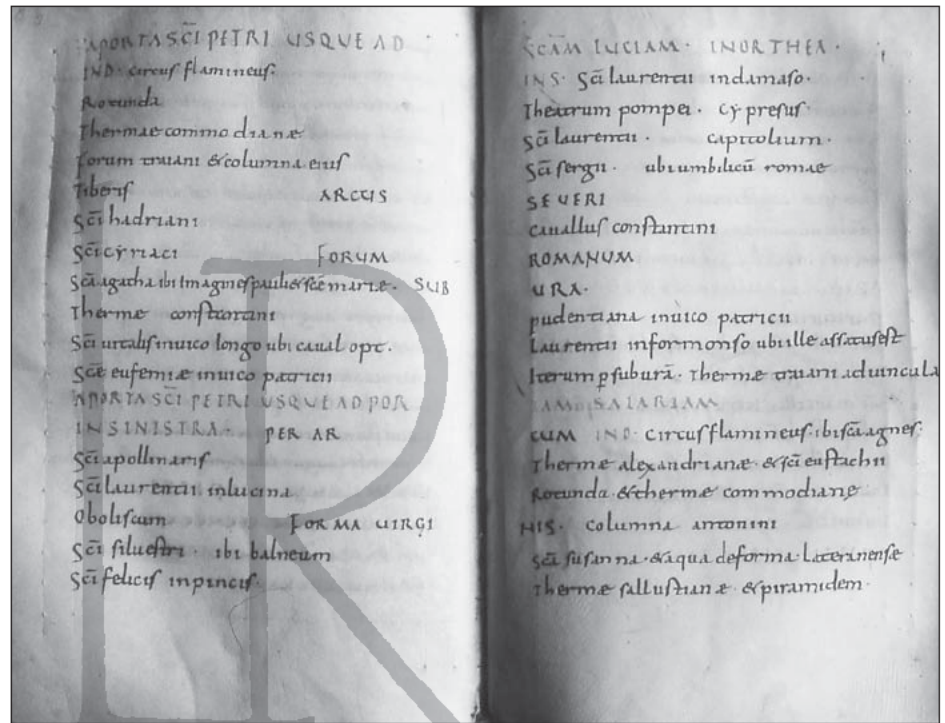 APORTA SC̄I PETRI USQUE AD
IND. circus flamineus.
Rotunda
Thermae commodianæ
forum traiani & columna eius
Tiberis ARCUS
Sc̄i hadriani
Sc̄i cẏriaci FORUM
Sc̄a agatha ibi imagines pauli & sc̄e mariæ. SUB
Thermæ constantini
Sc̄i uitalis inuico longo ubi cauall opt.
Sc̄e eufemiæ inuico patricii
APORTA SC̄I PETRI USQUE AD POR
IN SINISTRA. PER AR
Sc̄i apollinaris
Sc̄i laurentii inlucina
Oboliscum FORMA UIRGI
Sc̄i siluestri. ibi balneum
Sc̄i felicis inpincis.
SC̄AM LUCIAM. INORTHEA.
INS. Sc̄i laurentii indamaso.
Theatrum pompei. Cẏpresus.
Sc̄i laurentii. capitolium.
Sc̄i sergii. ubi umbilicū romae
SEUERI
cauallus constantini
ROMANUM
URA.
pudentiana inuico patricii
Laurentii informonso ubi ille assatus est
Iterum p suburā. Thermæ traiani aduincula
TAM SALARIAM
CUM IND. Circus flamineus. ibi sc̄a agnes.
Thermæ alexandrianæ. & sc̄i eustachii
Rotunda. & thermæ commodianę
NIS. columna antonini
Sc̄a susanna. & aqua deforma Lateranense
Thermæ sallustianæ. & piramidem.